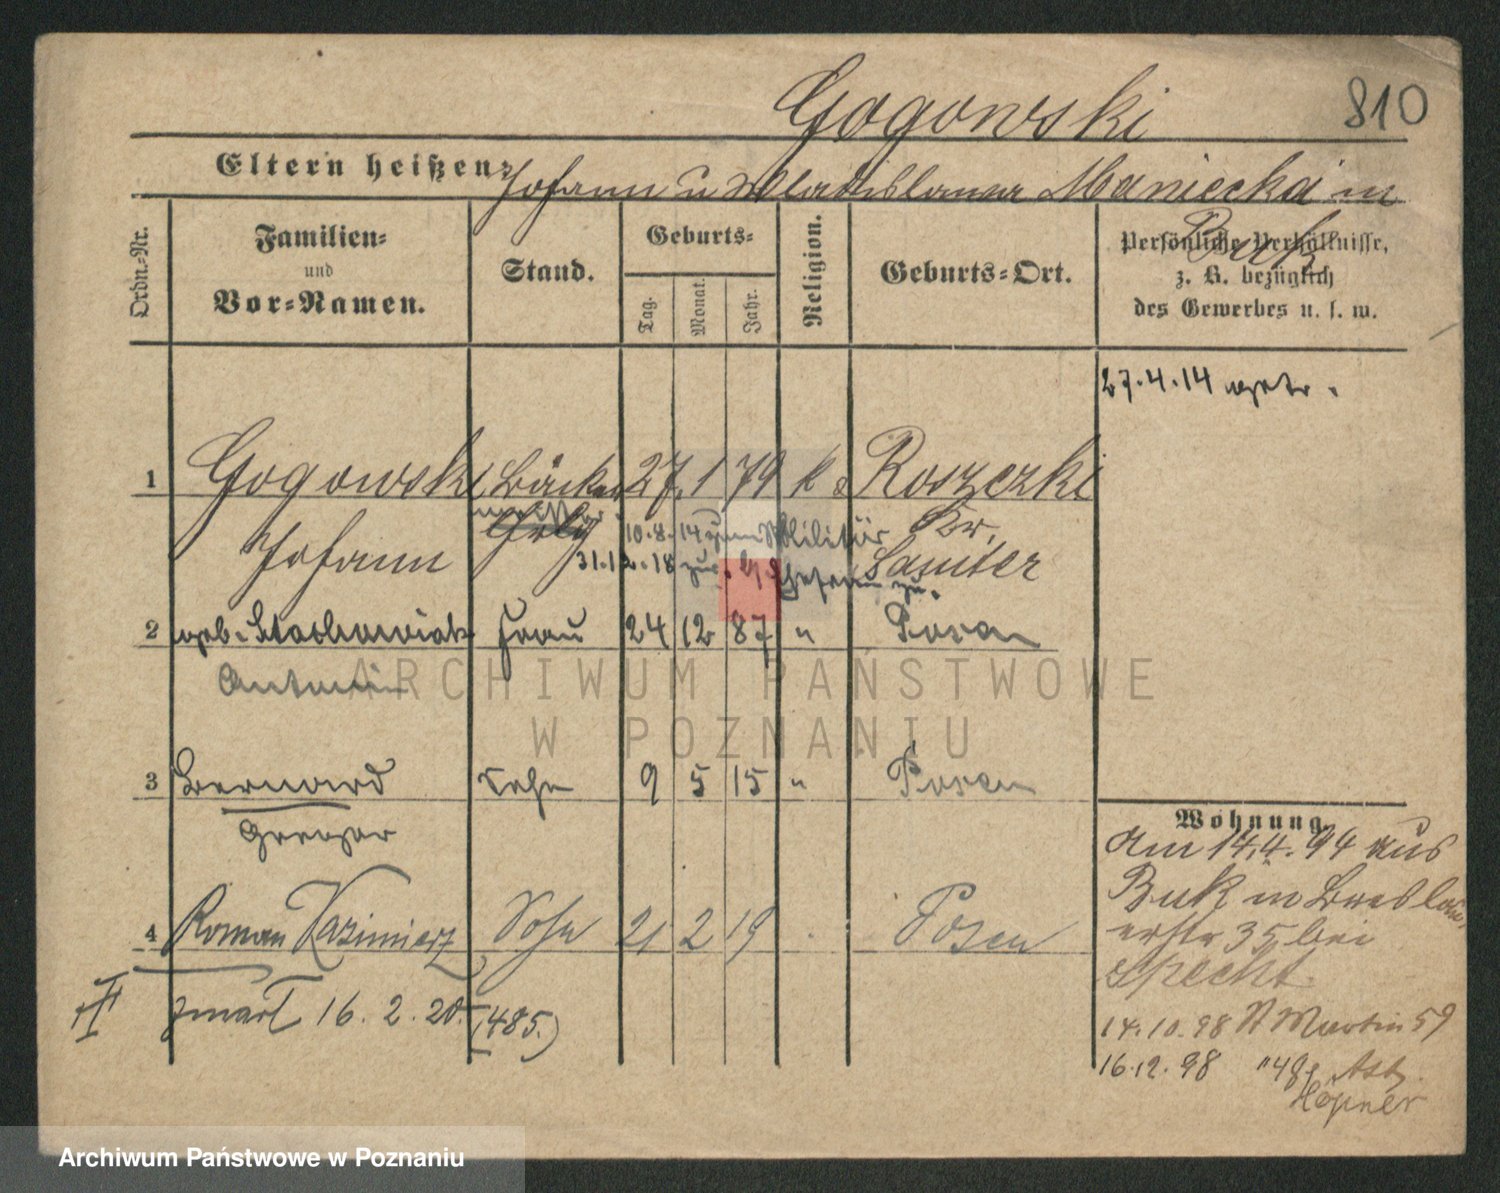 Gogowski
810
Eltern heißen:
Johann u Wladislawa Maniecka in
Buk
Ordn.-Nr.
Familien-
und
Vor-Namen.
Stand.
Geburts-
Tag.
Monat.
Jahr.
Religion.
Geburts-Ort.
Persönliche Verhältnisse,
z. B. bezüglich
des Gewerbes u. s. w.
27.4.14 getr.
1 Gogowski Bäcker 27. 1 79 k. Roszczki
Kr.
10.8.14 zum Militär
Johann Samter
31.12.18 zur. v. Ehefrau zu.
2 geb. Stachowiak Frau 24 12 87 " Posen
Antonie
3 Bernard Sohn 9 5 15 " Posen
Gregor
4 Roman Kazimierz Sohn 21 2 19 Posen
zmarł 16. 2. 20. (485.)
Wohnung
Am 14.4.94 aus
Buk in Breslau
erstr 35 bei
Specht.
14.10.98 St Martin 59
16.12.98 " 48
Höpner
ARCHIWUM PAŃSTWOWE
W POZNANIU
Archiwum Państwowe w Poznaniu